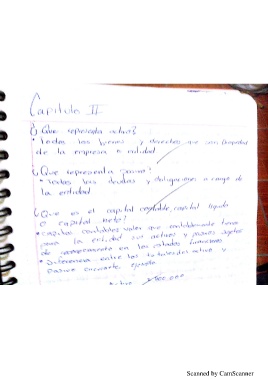 Capitulo II
¿Que representa activo?
• Todos los bienes y derechos que son propiedad
de la empresa o entidad
¿Que representa pasivo?
• Todas las deudas y obligaciones a cargo de
la entidad.
¿Que es el capital contable, capital líquido
o capital neto?
contables vales que contablemente tienen
para la entidad sus activos y pasivos sujetos
de reconocimiento en los estados financieros
• Diferencia entre los totales del activo y
pasivo circunte, ejemplo
Activo
Scanned by CamScanner